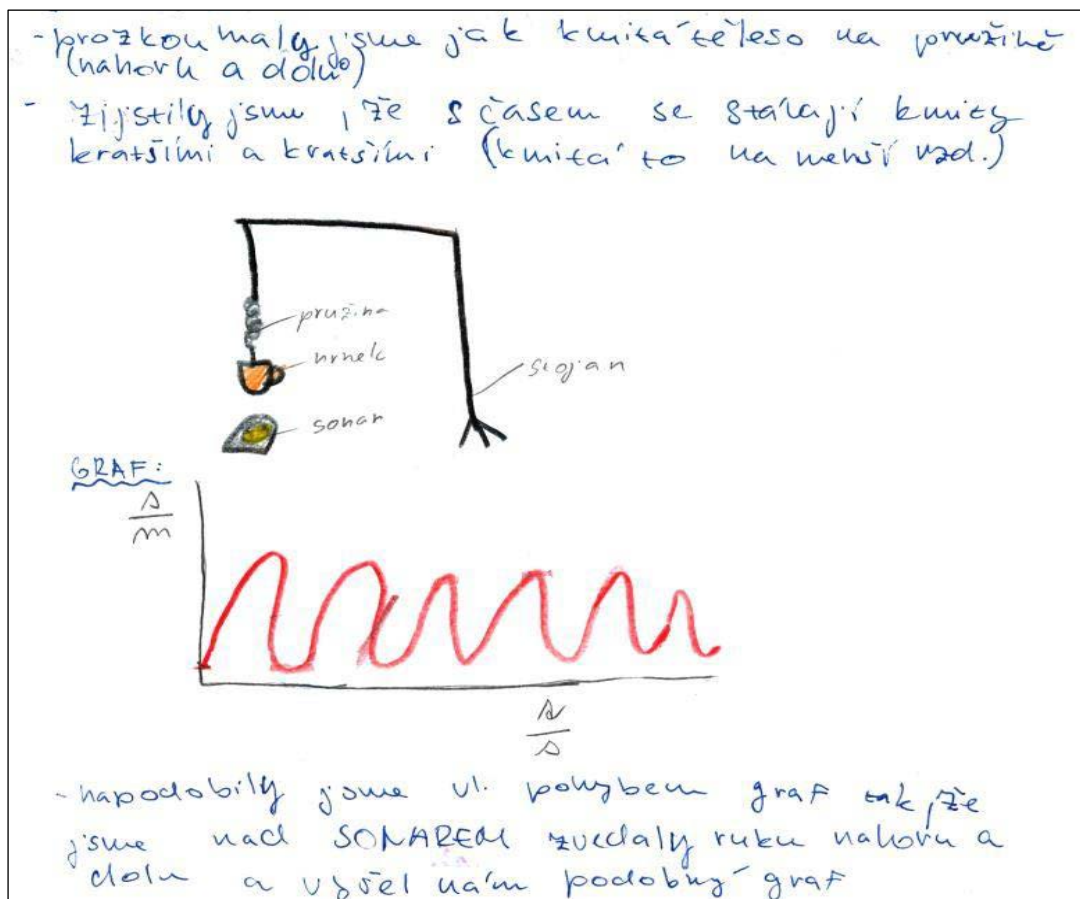 - prozkoumaly jsme jak kmitá těleso na pružině
(nahoru a dolů)
- zijstily jsme, že s časem se stálají kmity
kratšími a kratšími (kmitá to na menší vzd.)
pružina
hrnek
stojan
sonar
GRAF:
s
m
t
s
- napodobily jsme vl. pohybem graf tak, že
jsme nad SONAREM zvedaly ruku nahoru a
dolu a vyšel nám podobný graf